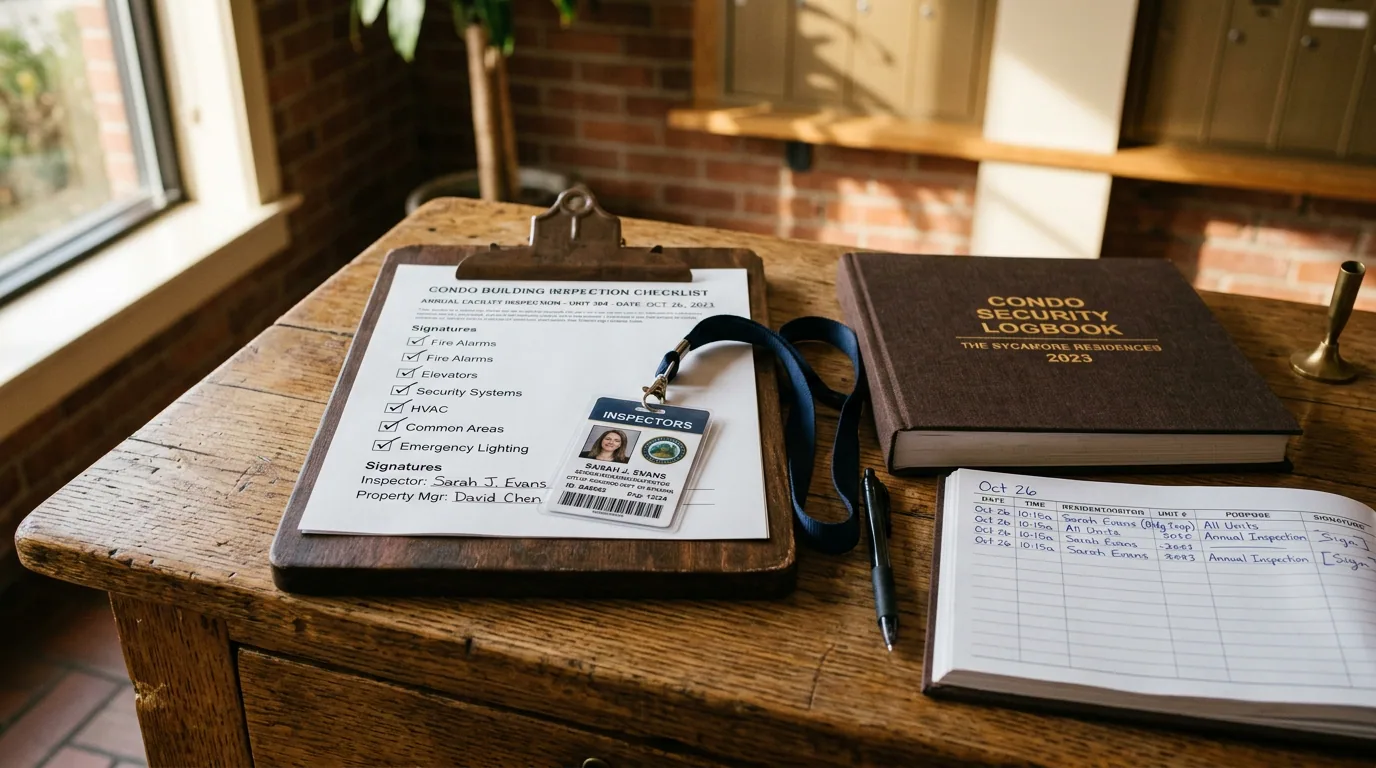 CONDO BUILDING INSPECTION CHECKLIST
ANNUAL FACILITY INSPECTION - UNIT 304 - DATE OCT 26, 2023
Signatures
Fire Alarms
Fire Alarms
Elevators
Security Systems
HVAC
Common Areas
Emergency Lighting
Signatures
Inspector: Sarah J. Evans
Property Mgr: David Chen
INSPECTORS
SARAH J. EVANS
CONDO
SECURITY
LOGBOOK
THE SYCAMORE RESIDENCES
2023
Oct 26
DATE TIME UNIT # PURPOSE SIGNATURE
Oct 26 10:15a Sarah Evans All Units
Oct 26 10:15a Annual Inspection
Oct 26 10:15a Sarah Evans
Oct 26 10:15a Sarah Evans Annual Inspection [Sign